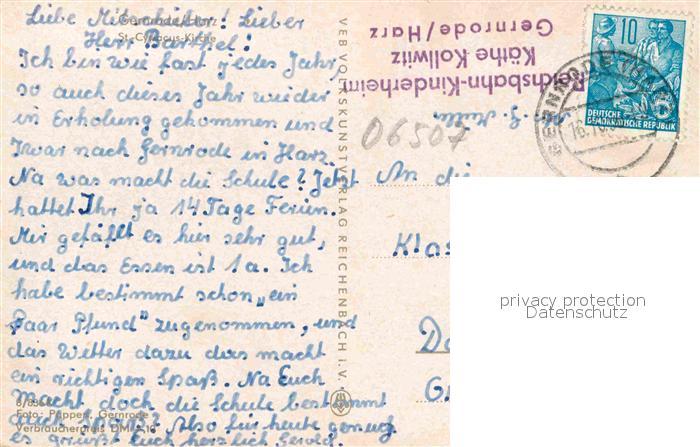 Liebe Mitarbeiter! Lieber
Gernrode/Harz
St.-Cyriacus-Kirche
Herr Barthel!
Ich bin wie fast jedes Jahr,
so auch dieses Jahr wieder
in Erholung gekommen und
zwar nach Gernrode im Harz.
Na was macht die Schule? Jetzt
hattet Ihr ja 14 Tage Ferien.
Mir gefällt es hier sehr gut,
und das Essen ist 1a. Ich
habe bestimmt schon „ein
Paar Pfund" zugenommen, und
das Wetter dazu das macht
ein richtigen Spaß. Na Euch
macht doch die Schule bestimmt
auch Spaß? Also für heute genug
es grüßt Euch herzlich Gerold.
Foto: Püppert, Gernrode
Verbraucherpreis DM
VEB VOLKSKUNSTVERLAG REICHENBACH I. V.
Reichsbahn-Kinderheim
Käthe Kollwitz
Gernrode/Harz
06507
10
DEUTSCHE
DEMOKRATISCHE REPUBLIK
GERNRODE (HARZ)
An die
Klas
privacy protection
Datenschutz